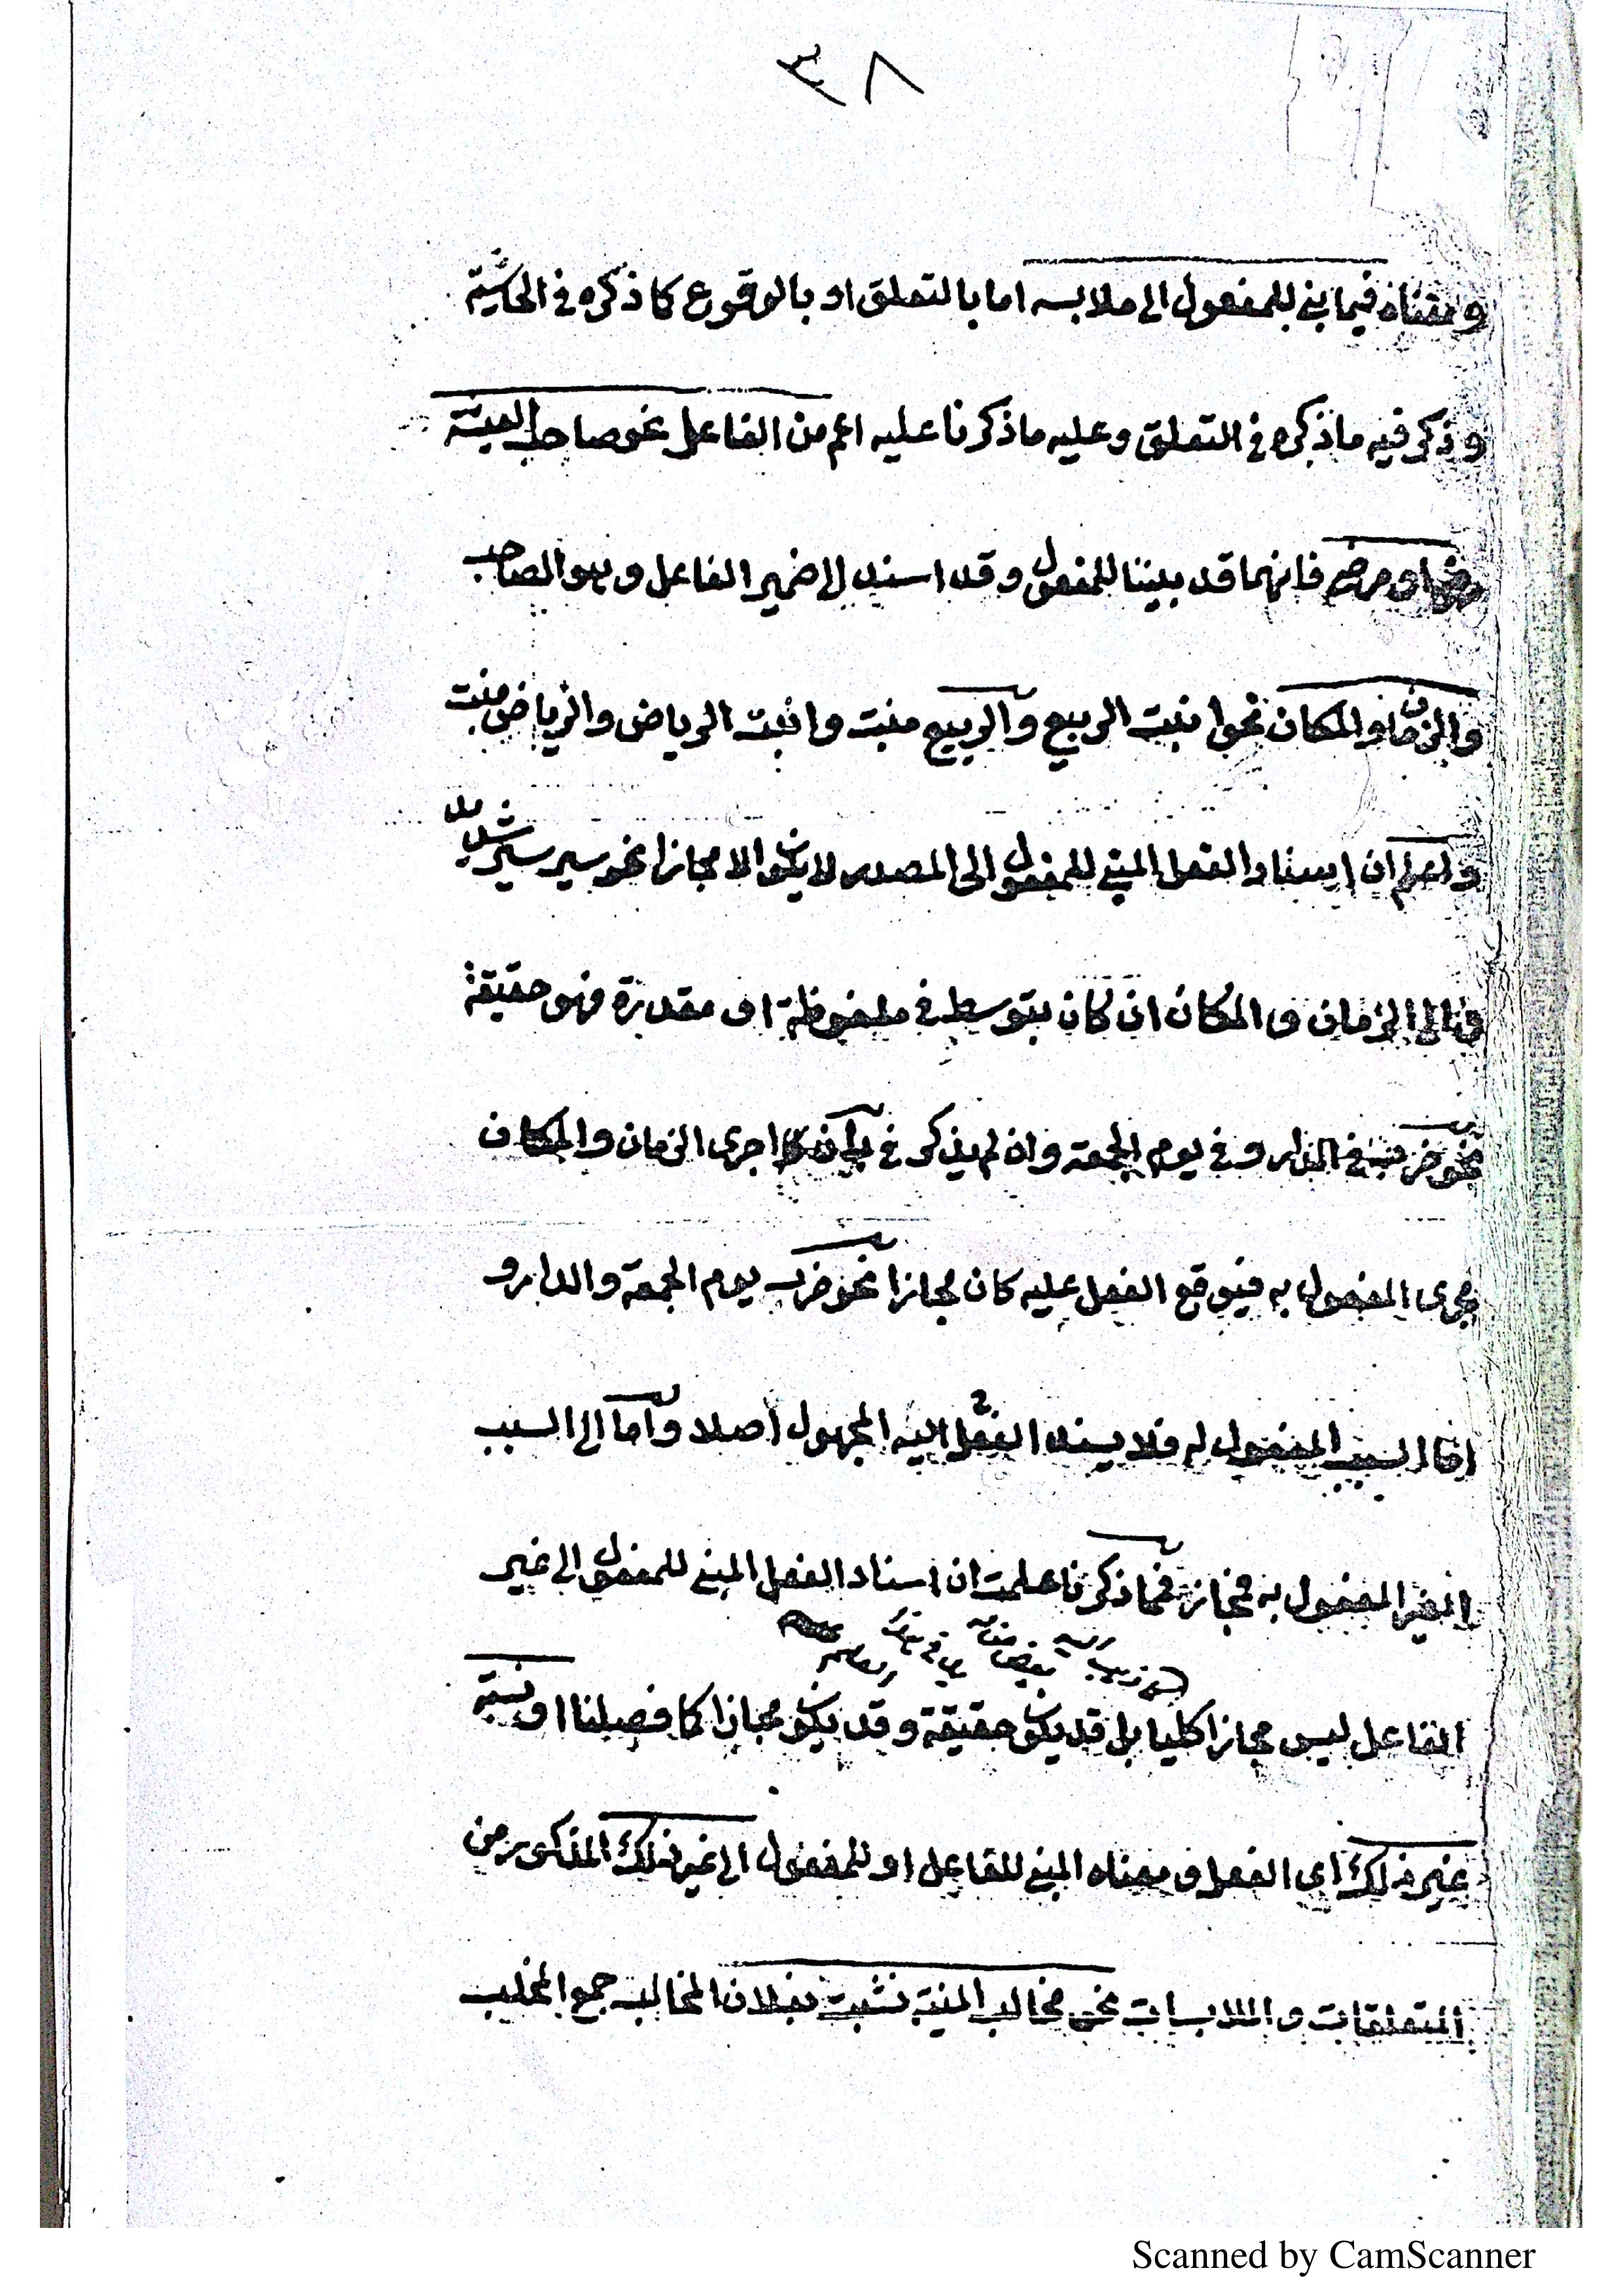 ٣٨
ومعناه فيما بني للمفعول الى ملابسه اما بالتعلق او بالوقوع كما ذكره في الحاشية
وذكر فيه ما ذكره في التعلق وعليه ما ذكرنا عليه اعم من الفاعل نحو صاحب العيشة
او مرضي فانهما قد بنينا للمفعول وقد اسند الى ضمير الفاعل وهو الصاحب
والزمان والمكان نحو انبت الربيع والربيع منبت وانبت الرياض والرياض منبت
واعلم ان اسناد الفعل المبني للمفعول الى المصدر لا يكون الا مجازا نحو سير سير شديد
الى الزمان والمكان ان كان بتوسط في ملفوظة او مقدرة فهو حقيقة
نحو ضرب في الدار وفي يوم الجمعة وان لم يذكر في اجرى الزمان والمكان
مجرى المفعول به فيوقع الفعل عليه كان مجازا نحو ضرب يوم الجمعة والدار و
اما السبب المفعول له فلا يسند الفعل اليه المجهول اصلا واما الى السبب
الغير المفعول به فمجاز فما ذكرنا علمت ان اسناد الفعل المبني للمفعول الى غير
الفاعل ليس مجازا كليا بل قد يكون حقيقة وقد يكون مجازا كما فصلنا او نسبة
غير ذلك اى الفعل ومعناه المبني للفاعل او للمفعول الى غير ذلك المذكور من
المتعلقات والملابسات نحو مخالب المنية نشبت بفلان المخالب جمع المخلب
Scanned by CamScanner